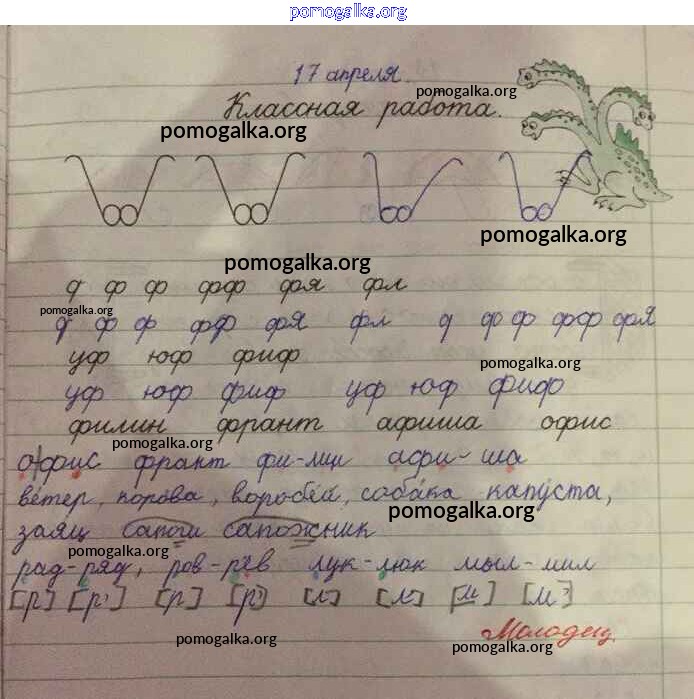 pomogalka.org
17 апреля.
pomogalka.org
Классная работа.
pomogalka.org
pomogalka.org
pomogalka.org
ф ф ф фф фя фл
pomogalka.org
ф ф ф фф фя фл ф ф ф фф фя
уф юф фиф
pomogalka.org
уф юф фиф уф юф фиф
филин франт афиша офис
pomogalka.org
офис франт фи- афи-ша
ветер, корова, воробей, собака капуста,
pomogalka.org
заяц сапоги сапожник
pomogalka.org
рад-ряд, ров-рёв лук-люк мыл-мил
[р] [р'] [р] [р'] [л] [л'] [м] [м']
pomogalka.org
Молодец
pomogalka.org